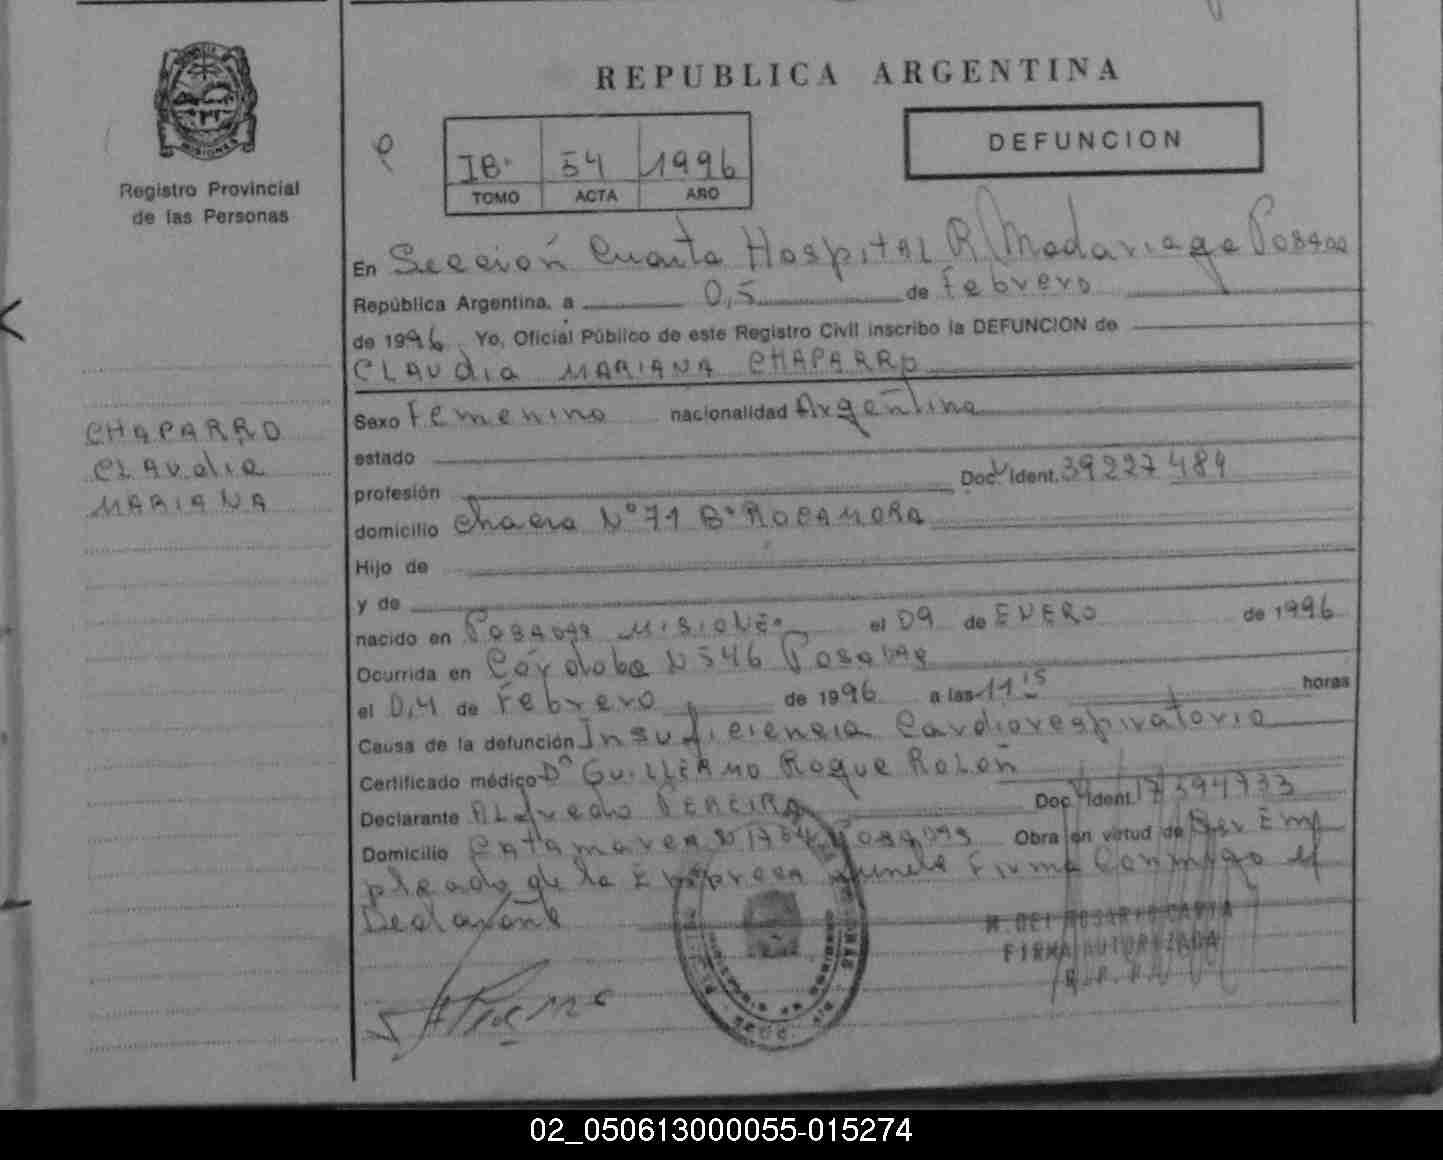 REPUBLICA ARGENTINA
DEFUNCION
MISIONES
Registro Provincial
de las Personas
IBº 54 1996
TOMO ACTA AÑO
En Sección Cuarta Hospital R. Madariaga Posadas
República Argentina, a 0,5 de Febrero
de 1996 Yo, Oficial Público de este Registro Civil inscribo la DEFUNCION de
CLAudia MARIANA CHAPARRO
Sexo Femenino nacionalidad Argentina
CHAPARRO
CLAudia
MARIANA
estado
profesión Doc. Ident. 39227484
domicilio Chacra Nº 71 Bº ROCAMORA
Hijo de
y de
nacido en Posadas MISIONES el 09 de ENERO de 1996
Ocurrida en Córdoba N 546 Posadas
el 0,4 de Febrero de 1996 a las 11 15 horas
Causa de la defunción Insuficiencia Cardiorespiratoria
Certificado médico Dr GuILLERMO Roque Rolón
Declarante ALfredo PEREIRA Doc. Ident. 17394733
Domicilio Catamarca N Posadas Obra en virtud de Ser Em
pleado de la Empresa Firma Conmigo el
Declarante
M. DEL ROSARIO
FIRMA AUTORIZADA
02_050613000055-015274